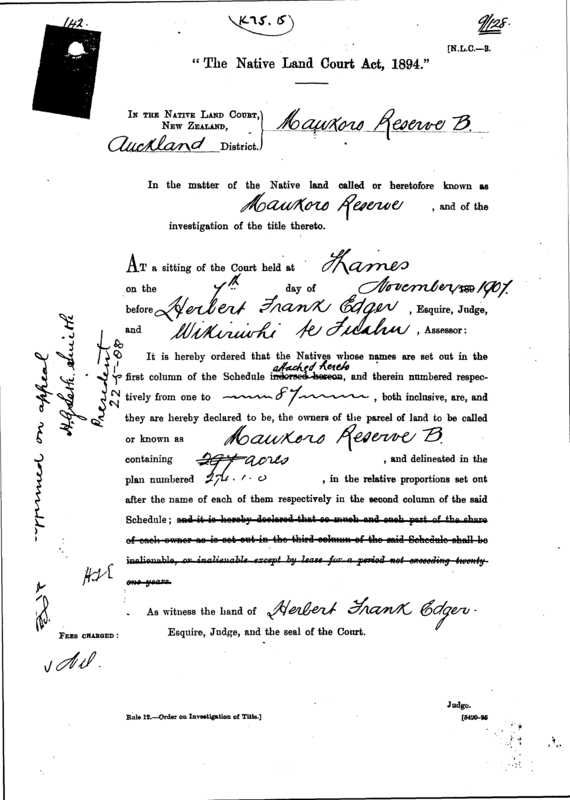 142.
K75.B
9/128.
[N.L.C.—3.
"The Native Land Court Act, 1894."
IN THE NATIVE LAND COURT,
NEW ZEALAND,
Auckland District.
Maukoro Reserve B.
In the matter of the Native land called or heretofore known as
Maukoro Reserve , and of the
investigation of the title thereto.
AT a sitting of the Court held at Thames
on the 7th day of November 189 1907.
before Herbert Frank Edger , Esquire, Judge,
and Wikiriwhi te , Assessor:
It is hereby ordered that the Natives whose names are set out in the
attached hereto
first column of the Schedule indorsed hereon, and therein numbered respec-
tively from one to 87 , both inclusive, are, and
they are hereby declared to be, the owners of the parcel of land to be called
or known as Maukoro Reserve B.
containing acres , and delineated in the
plan numbered , in the relative proportions set out
after the name of each of them respectively in the second column of the said
Schedule; and it is hereby declared that so much and such part of the share
of each owner as is set out in the third column of the said Schedule shall be
inalienable, or inalienable except by lease for a period not exceeding twenty-
one years.
HFE
As witness the hand of Herbert Frank Edger.
Esquire, Judge, and the seal of the Court.
FEES CHARGED:
Nil.
on appeal
H.G. Seth-Smith
President
22-5-08
Judge.
Rule 12.—Order on Investigation of Title.]
[5499-95